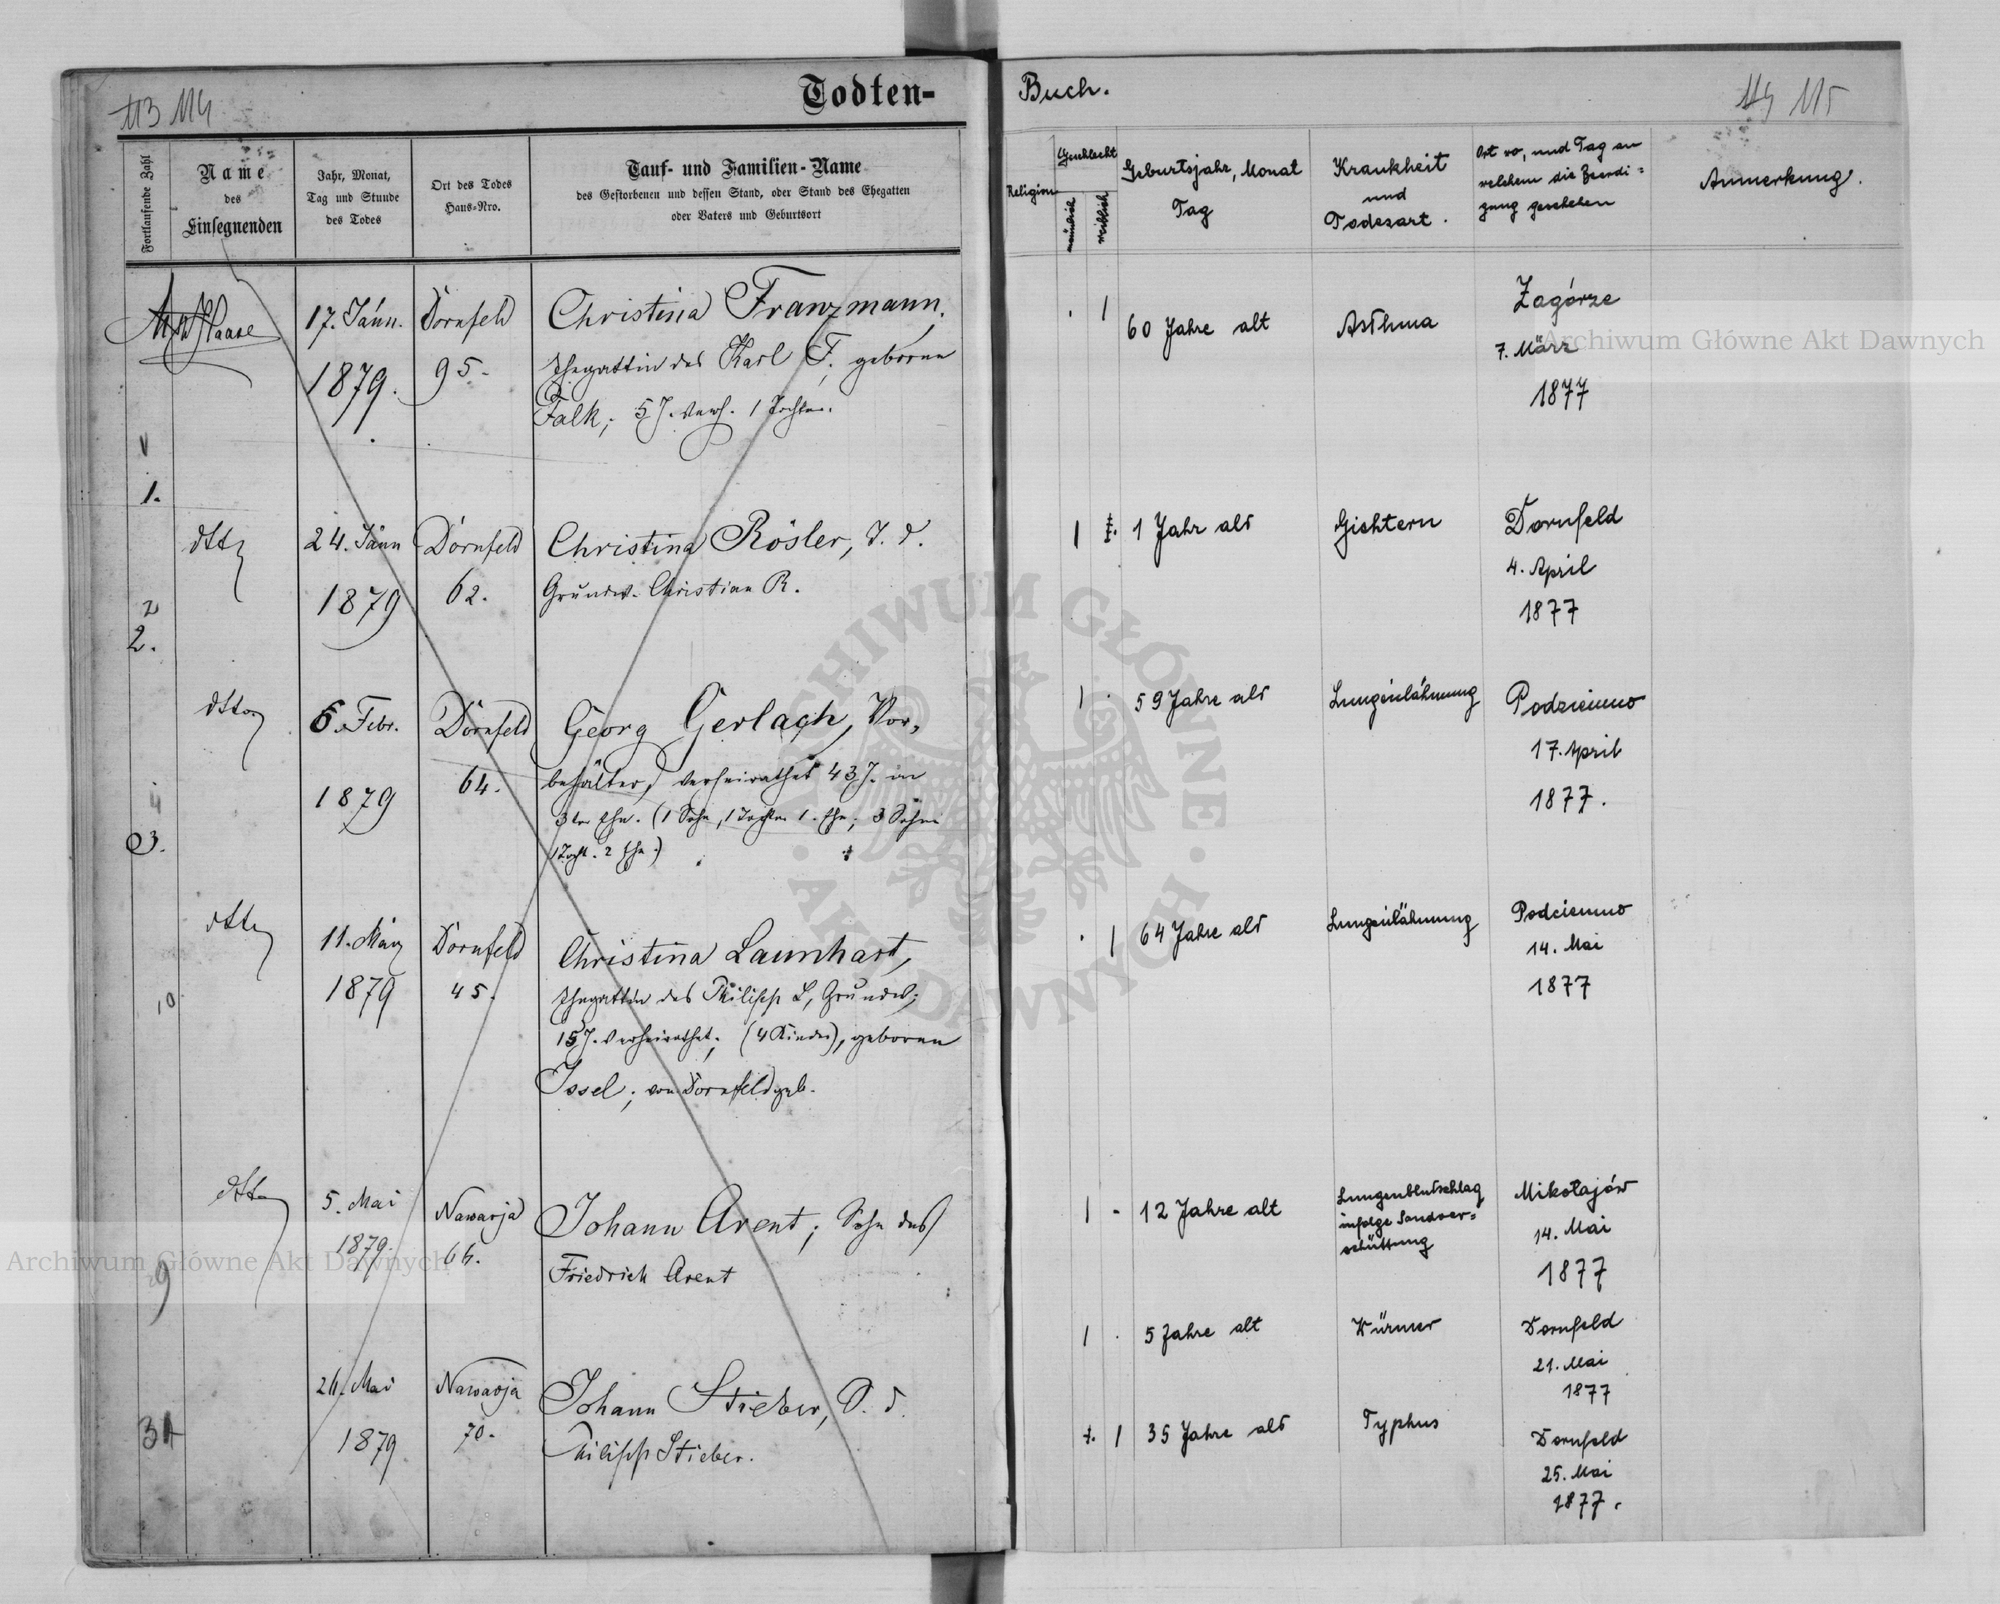 113 114
Todten-
Fortlaufende Zahl
Name
des
Einsegnenden
Jahr, Monat,
Tag und Stunde
des Todes
Ort des Todes
Haus-Nro.
Tauf- und Familien-Name
des Gestorbenen und dessen Stand, oder Stand des Ehegatten
oder Vaters und Geburtsort
Haase
17. Jänn.
1879.
Dornfeld
95.
Christina Franzmann,
Ehegattin des Karl F., geborne
Falk; 5 J. verh. 1 Tochter.
1.
dtto
24. Jänn
1879
Dornfeld
62.
Christina Rösler, T. d.
Grundw. Christian R.
2
2.
dtto
6. Febr.
1879
Dornfeld
64.
Georg Gerlach, Vor-
behälter, verheirathet 43 J. in
3ter Ehe. (1 Sohn, 1 Tochter 1. Ehe; 3 Söhne
1 Tocht. 2 Ehe.)
4
3.
dtto
11. März
1879
Dornfeld
45.
Christina Launhart,
Ehegattin des Philipp L, Grundw;
15 J. verheirathet; (4 Kinder), geborne
Issel; von Dornfeld geb.
10
dtto
5. Mai
1879.
Nawarja
66.
Johann Arent; Sohn des
Friedrich Arent
9
26. Mai
1879
Nawarja
70.
Johann Stieber, S. d.
Philipp Stieber.
Buch.
114 115
Religion
Geschlecht
männlich
weiblich
Geburtsjahr, Monat
Tag
Krankheit
und
Todesart.
Ort wo, und Tag an
welchem die Beerdi=
gung geschehen
Anmerkung.
. 1
60 Jahre alt
Asthma
Zagórze
7. März
1877
1
1 Jahr alt
Gichtern
Dornfeld
4. April
1877
1 .
59 Jahre alt
Lungenlähmung
Podzieimno
17. April
1877.
. 1
64 Jahre alt
Lungenlähmung
Podciemno
14. Mai
1877
1 -
12 Jahre alt
Lungenblutschlag
infolge Sandver=
schüttung
Mikołajów
14. Mai
1877
1 .
5 Jahre alt
Würmer
Dornfeld
21. Mai
1877
1
35 Jahre alt
Typhus
Dornfeld
25. Mai
1877.
Archiwum Główne Akt Dawnych
Archiwum Główne Akt Dawnych
ARCHIWUM GŁÓWNE · AKT DAWNYCH ·